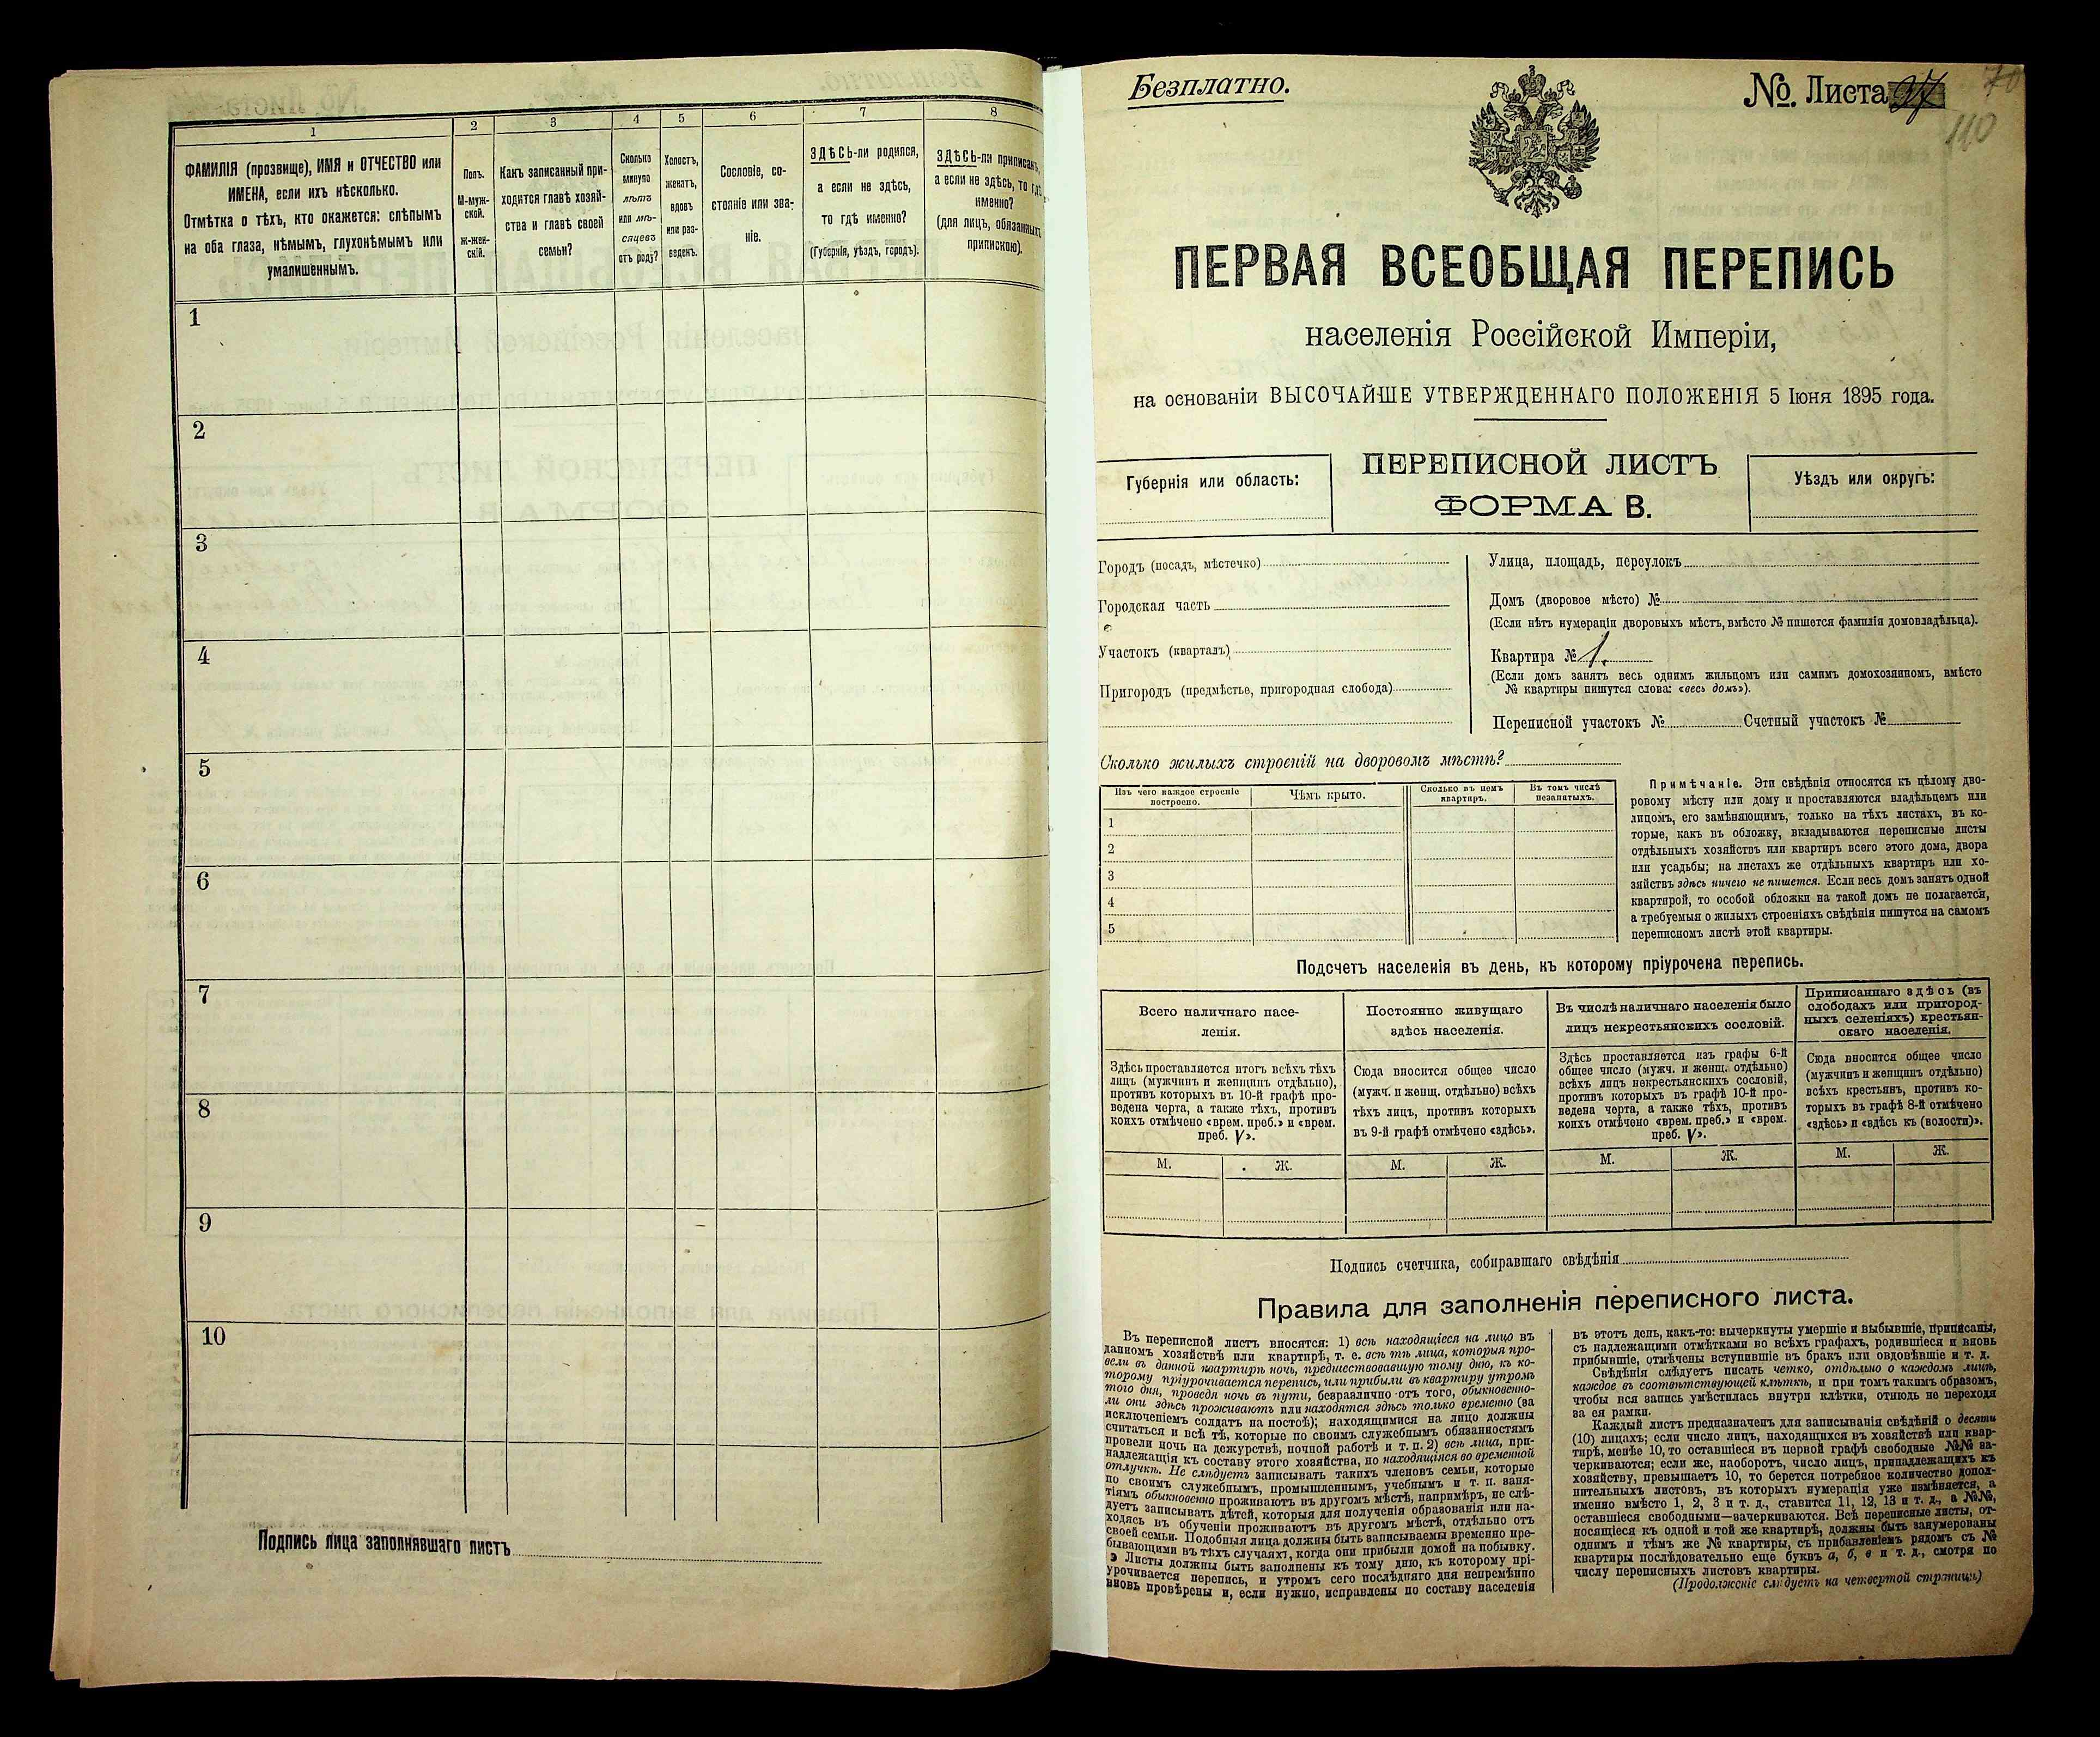 1
2
3
4
5
6
7
8
ФАМИЛІЯ (прозвище), ИМЯ и ОТЧЕСТВО или
ИМЕНА, если ихъ нѣсколько.
Отмѣтка о тѣхъ, кто окажется: слѣпымъ
на оба глаза, нѣмымъ, глухонѣмымъ или
умалишеннымъ.
Полъ.
М-муж-
ской.
Ж-жен-
скій.
Какъ записанный при-
ходится главѣ хозяй-
ства и главѣ своей
семьи?
Сколько
минуло
лѣтъ
или мѣ-
сяцевъ
отъ роду?
Холостъ,
женатъ,
вдовъ
или раз-
веденъ.
Сословіе, со-
стояніе или зва-
ніе.
ЗДѢСЬ-ли родился,
а если не здѣсь,
то гдѣ именно?
(Губернія, уѣздъ, городъ).
ЗДѢСЬ-ли приписанъ,
а если не здѣсь, то гдѣ
именно?
(для лицъ, обязанныхъ
припискою).
1
2
3
4
5
6
7
8
9
10
Подпись лица заполнявшаго листъ
Безплатно.
№. Листа 27
70
110
ПЕРВАЯ ВСЕОБЩАЯ ПЕРЕПИСЬ
населенія Россійской Имперіи,
на основаніи ВЫСОЧАЙШЕ УТВЕРЖДЕННАГО ПОЛОЖЕНІЯ 5 Іюня 1895 года.
Губернія или область:
ПЕРЕПИСНОЙ ЛИСТЪ
ФОРМА В.
Уѣздъ или округъ:
Городъ (посадъ, мѣстечко)
Городская часть
Участокъ (кварталъ)
Пригородъ (предмѣстье, пригородная слобода)
Улица, площадь, переулокъ
Домъ (дворовое мѣсто) №
(Если нѣтъ нумераціи дворовыхъ мѣстъ, вмѣсто № пишется фамилія домовладѣльца).
Квартира № 1.
(Если домъ занятъ весь однимъ жильцомъ или самимъ домохозяиномъ, вмѣсто
№ квартиры пишутся слова: «весь домъ»).
Переписной участокъ № Счетный участокъ №
Сколько жилыхъ строеній на дворовомъ мѣстѣ?
Изъ чего каждое строеніе
построено.
Чѣмъ крыто.
Сколько въ немъ
квартиръ.
Въ томъ числѣ
незанятыхъ.
1
2
3
4
5
Примѣчаніе. Эти свѣдѣнія относятся къ цѣлому дво-
ровому мѣсту или дому и проставляются владѣльцемъ или
лицомъ, его замѣняющимъ, только на тѣхъ листахъ, въ ко-
торые, какъ въ обложку, вкладываются переписные листы
отдѣльныхъ хозяйствъ или квартиръ всего этого дома, двора
или усадьбы; на листахъ же отдѣльныхъ квартиръ или хо-
зяйствъ здѣсь ничего не пишется. Если весь домъ занятъ одной
квартирой, то особой обложки на такой домъ не полагается,
а требуемыя о жилыхъ строеніяхъ свѣдѣнія пишутся на самомъ
переписномъ листѣ этой квартиры.
Подсчетъ населенія въ день, къ которому пріурочена перепись.
Всего наличнаго насе-
ленія.
Постоянно живущаго
здѣсь населенія.
Въ числѣ наличнаго населенія было
лицъ некрестьянскихъ сословій.
Приписаннаго здѣсь (въ
слободахъ или пригород-
ныхъ селеніяхъ) крестьян-
скаго населенія.
Здѣсь проставляется итогъ всѣхъ тѣхъ
лицъ (мужчинъ и женщинъ отдѣльно),
противъ которыхъ въ 10-й графѣ про-
ведена черта, а также тѣхъ, противъ
коихъ отмѣчено «врем. преб.» и «врем.
преб. V».
Сюда вносится общее число
(мужч. и женщ. отдѣльно) всѣхъ
тѣхъ лицъ, противъ которыхъ
въ 9-й графѣ отмѣчено «здѣсь».
Здѣсь проставляется изъ графы 6-й
общее число (мужч. и женщ. отдѣльно)
всѣхъ лицъ некрестьянскихъ сословій,
противъ которыхъ въ графѣ 10-й про-
ведена черта, а также тѣхъ, противъ
коихъ отмѣчено «врем. преб.» и «врем.
преб. V».
Сюда вносится общее число
(мужчинъ и женщинъ отдѣльно)
всѣхъ крестьянъ, противъ ко-
торыхъ въ графѣ 8-й отмѣчено
«здѣсь» и «здѣсь къ (волости)».
М. Ж. М. Ж. М. Ж. М. Ж.
Подпись счетчика, собиравшаго свѣдѣнія
Правила для заполненія переписного листа.
Въ переписной листъ вносятся: 1) всѣ находящіеся на лицо въ
данномъ хозяйствѣ или квартирѣ, т. е. всѣ тѣ лица, которыя про-
вели въ данной квартирѣ ночь, предшествовавшую тому дню, къ ко-
торому пріурочивается перепись, или прибыли въ квартиру утромъ
того дня, проведя ночь въ пути, безразлично отъ того, обыкновенно-
ли они здѣсь проживаютъ или находятся здѣсь только временно (за
исключеніемъ солдатъ на постоѣ); находящимися на лицо должны
считаться и всѣ тѣ, которые по своимъ служебнымъ обязанностямъ
провели ночь на дежурствѣ, ночной работѣ и т. п. 2) всѣ лица, при-
надлежащія къ составу этого хозяйства, но находящіяся во временной
отлучкѣ. Не слѣдуетъ записывать такихъ членовъ семьи, которые
по своимъ служебнымъ, промышленнымъ, учебнымъ и т. п. заня-
тіямъ обыкновенно проживаютъ въ другомъ мѣстѣ, напримѣръ, не слѣ-
дуетъ записывать дѣтей, которыя для полученія образованія или на-
ходясь въ обученіи проживаютъ въ другомъ мѣстѣ, отдѣльно отъ
своей семьи. Подобныя лица должны быть записываемы временно пре-
бывающими въ тѣхъ случаяхъ, когда они прибыли домой на побывку.
Листы должны быть заполнены къ тому дню, къ которому прі-
урочивается перепись, и утромъ сего послѣдняго дня непремѣнно
вновь провѣрены и, если нужно, исправлены по составу населенія
въ этотъ день, какъ-то: вычеркнуты умершіе и выбывшіе, приписаны,
съ надлежащими отмѣтками во всѣхъ графахъ, родившіеся и вновь
прибывшіе, отмѣчены вступившіе въ бракъ или овдовѣвшіе и т. д.
Свѣдѣнія слѣдуетъ писать четко, отдѣльно о каждомъ лицѣ,
каждое въ соотвѣтствующей клѣткѣ, и при томъ такимъ образомъ,
чтобы вся запись умѣстилась внутри клѣтки, отнюдь не переходя
за ея рамки.
Каждый листъ предназначенъ для записыванія свѣдѣній о десяти
(10) лицахъ; если число лицъ, находящихся въ хозяйствѣ или квар-
тирѣ, менѣе 10, то оставшіеся въ первой графѣ свободные №№ за-
черкиваются; если же, наоборотъ, число лицъ, принадлежащихъ къ
хозяйству, превышаетъ 10, то берется потребное количество допол-
нительныхъ листовъ, въ которыхъ нумерація уже измѣняется, а
именно вмѣсто 1, 2, 3 и т. д., ставится 11, 12, 13 и т. д., а №№,
оставшіеся свободными—зачеркиваются. Всѣ переписные листы, от-
носящіеся къ одной и той же квартирѣ, должны быть занумерованы
однимъ и тѣмъ же № квартиры, съ прибавленіемъ рядомъ съ №
квартиры послѣдовательно еще буквъ а, б, в и т. д., смотря по
числу переписныхъ листовъ квартиры.
(Продолженіе слѣдуетъ на четвертой страницѣ)